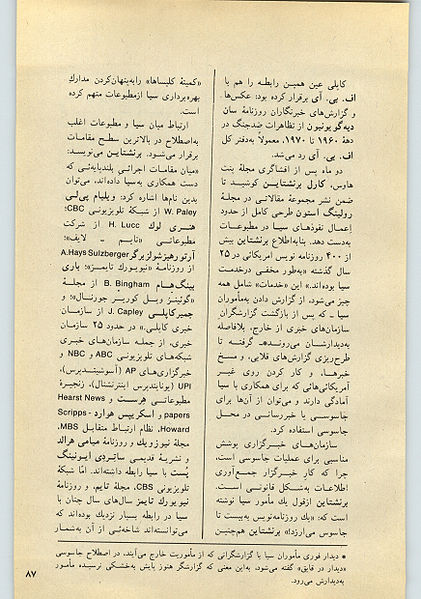 کاپلی عین همین رابطه را هم با
اف. بی. آی برقرار کرده بود: عکس‌ها
و گزارش‌های خبرنگاران روزنامهٔ سان
دیه‌گو یونیون از تظاهرات ضدجنگ در
دههٔ ۱۹۶۰ تا ۱۹۷۰، معمولاً به‌دفتر کل
اف. بی. آی رد می‌شد.
دو ماه پس از افشاگری مجلهٔ پنت
هاوس، کارل برنشتاین کوشید تا
ضمن نشر مجموعهٔ مقالاتی در مجلهٔ
رولینگ استون طرحی کامل از حدود
اِعمال نفوذهای سیا در مطبوعات
به‌دست دهد. بنابه‌اطلاع برنشتاین بیش
از ۴۰۰ روزنامه نویس امریکائی در ۲۵
سال گذشته «به‌طور مخفی درخدمت
سیا بوده‌اند.» این «خدمات» شامل همه
چیز می‌شود، از گزارش دادن به‌مأموران
سیا ـ که پس از بازگشت گزارشگران
سازمان‌های خبری از خارج، بلافاصله
به‌دیدارشان می‌روند*ـ گرفته تا
طرح‌ریزی گزارش‌های قلابی، و مسخ
خبرها، و کار کردن روی غیر
آمریکائی‌هائی که برای همکاری با سیا
آمادگی دارند و می‌توان از آن‌ها برای
جاسوسی یا خبررسانی در محل
جاسوسی استفاده کرد.
سازمان‌های خبرگزاری پوشش
مناسبی برای عملیات جاسوسی است،
چرا که کارِ خبرگزار جمع‌آوری
اطلاعات به‌شکل قانونی است.
برنشتاین ازقول یك مأمور سیا نوشته
است که: «یك روزنامه‌نویس به‌بیست تا
جاسوس می‌ارزد!» برنشتاین هم‌چنین
«کمیتهٔ کلیساها» رابه‌پنهان‌کردن مدارك
بهره‌برداری سیا ازمطبوعات متهم کرده
است.
ارتباط میان سیا و مطبوعات اغلب
به‌اصطلاح در بالاترین سطح مقامات
برقرار می‌شود. برنشتاین می‌نویسد:
«میان مقامات اجرائی بلندپایه‌ئی که
دست همکاری به‌سیا داده‌اند، می‌توان
بدین نام‌ها اشاره کرد: ویلیام پی‌لی
W. Paley از شبکهٔ تلویزیونی CBC؛
هنری لوك H. Lucc از شرکت
مطبوعاتی «تایم ـ لایف»؛
آرتورهیزشولزبرگر A.Hays Sulzberger
از روزنامهٔ «نیویورك تایمز»؛ باری
بینگ‌هام B. Bingham از مجلهٔ
«لوئیز ویل کوریر جورنال»؛ و
جمیزکاپلی J. Capley از سازمان
خبری کاپلی.» در حدود ۲۵ سازمان
خبری، از جمله سازمان‌های خبری
شبکه‌های تلویزیونی ABC و NBC و
خبرگزاری‌های AP (آسوشیتدپرس)،
UPI (یونایتدپرس اینترنشنال)، زنجیرهٔ
مطبوعاتی هرست و Hearst News
papers و اسکریپس هوارد - Scripps
Howard، نظام ارتباط متقابل MBS،
مجلهٔ نیوزویك و روزنامهٔ میامی هرالد
و نشریهٔ قدیمی ساتردی ایونینگ
پُست با سیا رابطه داشته‌اند. امّا شبکهٔ
تلویزیونی CBS، مجلهٔ تایم، و روزنامهٔ
نیویورك تایمز سال‌های سال چنان با
سیا در رابطه بسیار نزدیك بوده‌اند که
می‌توانسته‌اند شاخه‌ئی از آن به‌شمار
* دیدار فوری مأموران سیا با گزارشگرانی که از مأموریت خارج می‌آیند، در اصطلاح جاسوسی
«دیدار در قایق» گفته می‌شود، به‌این معنی که گزارشگر هنوز پایش به‌خشکی نرسیده مأمور
به‌دیدارش می‌رود.
۸۷